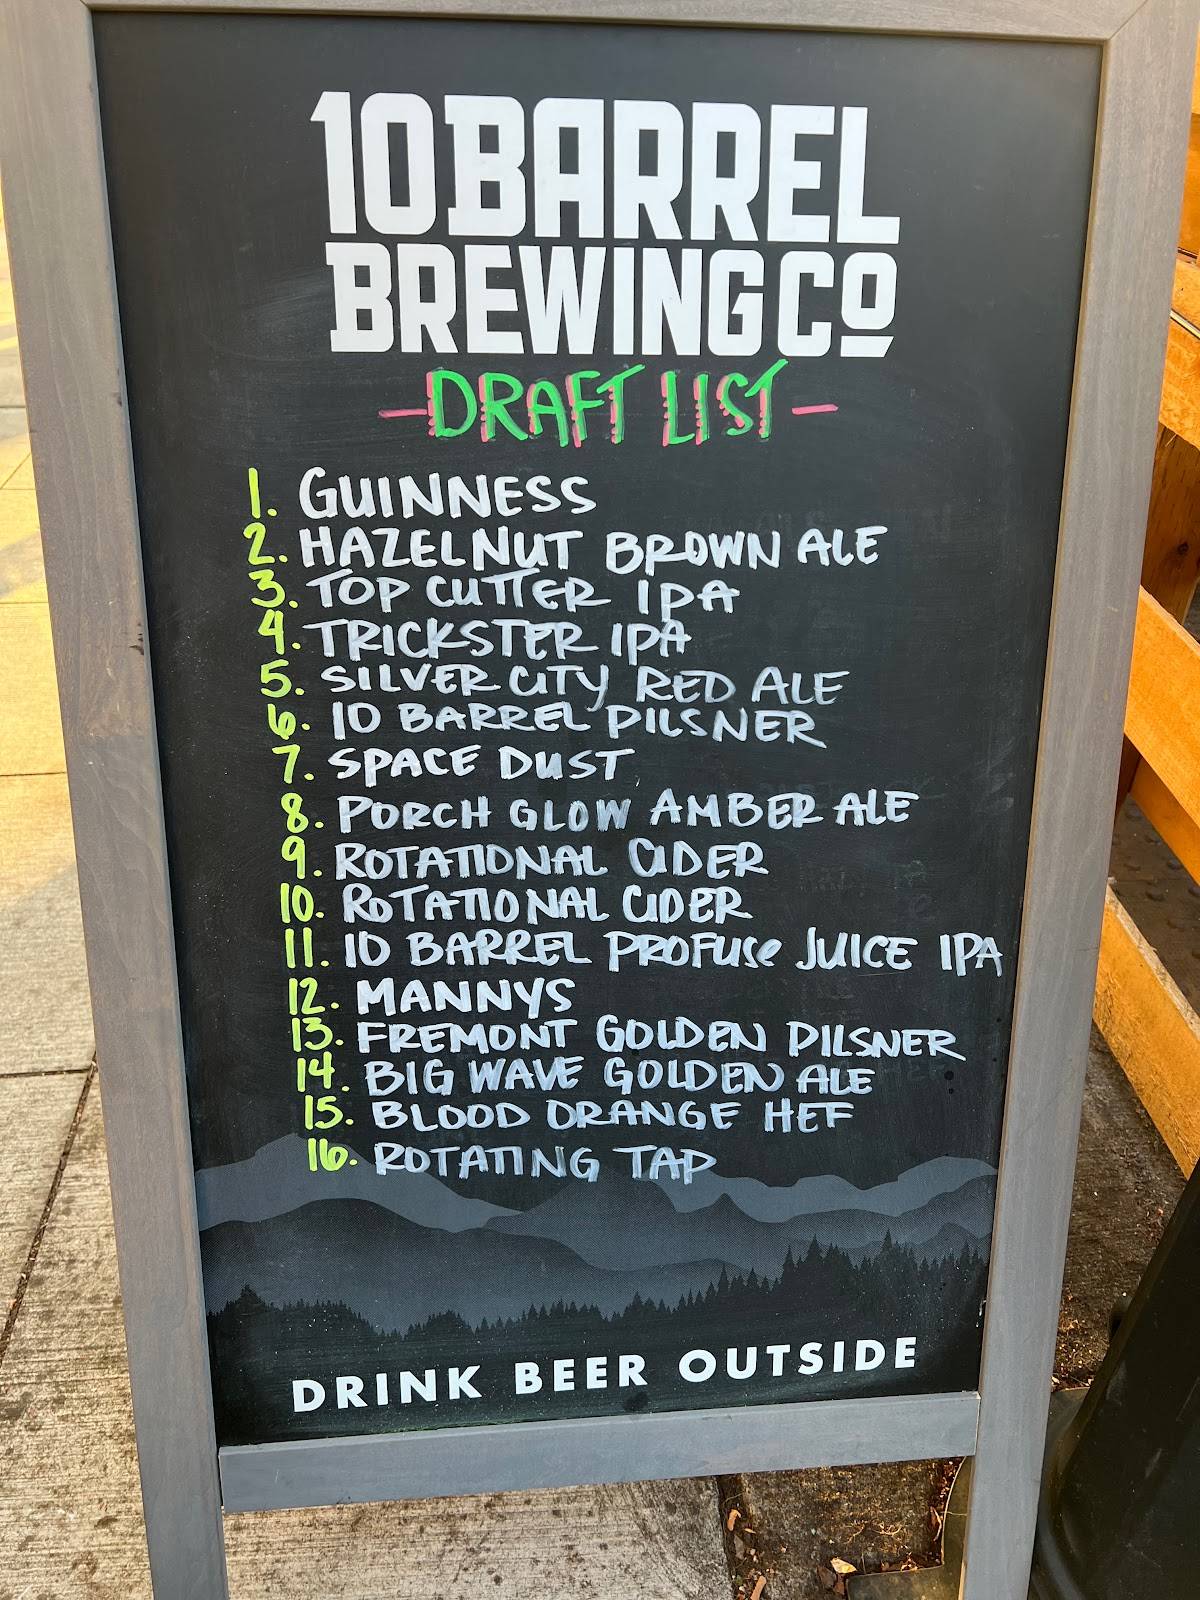 10 BARREL
BREWING CO
-DRAFT LIST-
1. GUINNESS
2. HAZELNUT BROWN ALE
3. TOP CUTTER IPA
4. TRICKSTER IPA
5. SILVER CITY RED ALE
6. 10 BARREL PILSNER
7. SPACE DUST
8. PORCH GLOW AMBER ALE
9. ROTATIONAL CIDER
10. ROTATIONAL CIDER
11. 10 BARREL PROFUSE JUICE IPA
12. MANNYS
13. FREMONT GOLDEN PILSNER
14. BIG WAVE GOLDEN ALE
15. BLOOD ORANGE HEF
16. ROTATING TAP
DRINK BEER OUTSIDE